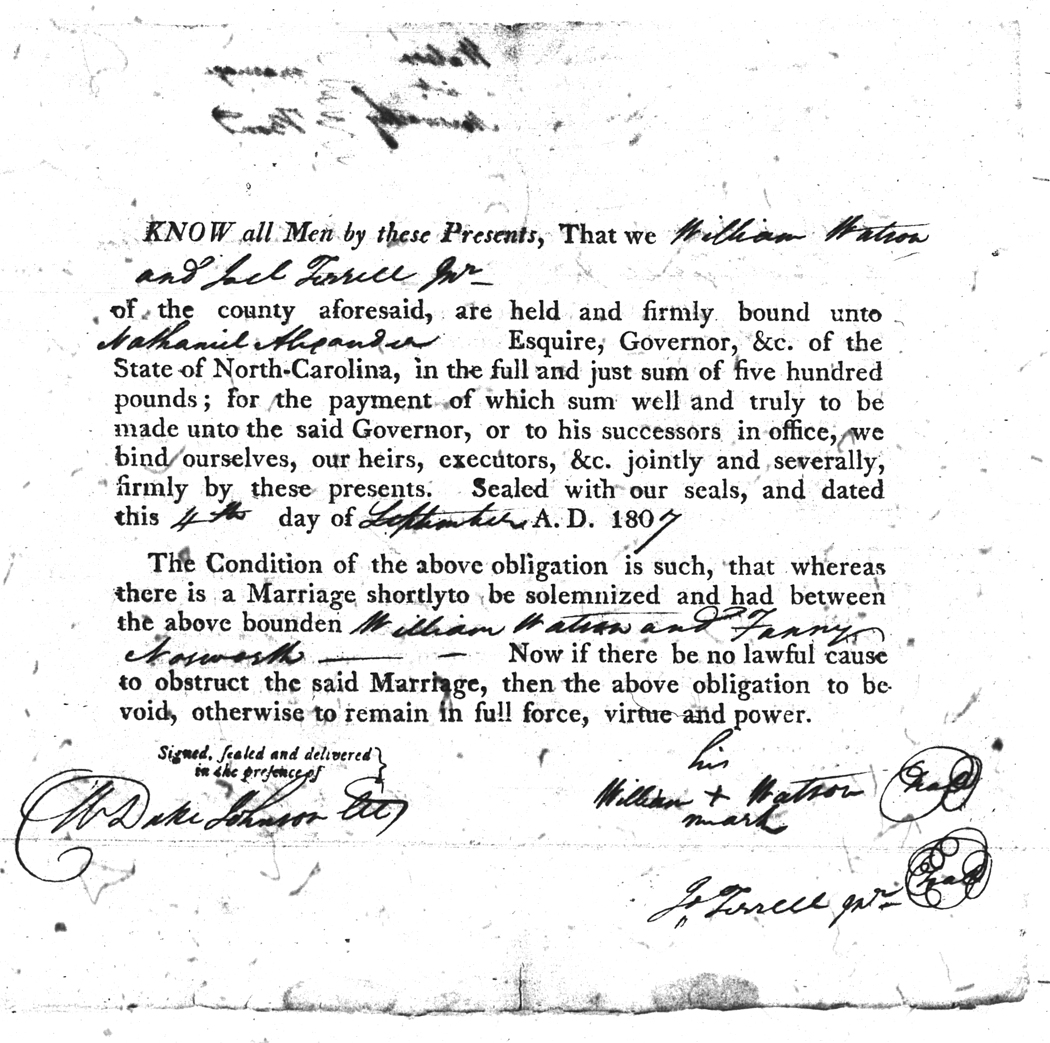 KNOW all Men by these Presents, That we William Watson
and Joel Terrell Jnr
of the county aforesaid, are held and firmly bound unto
Nathaniel Alexander Esquire, Governor, &c. of the
State of North-Carolina, in the full and just sum of five hundred
pounds; for the payment of which sum well and truly to be
made unto the said Governor, or to his successors in office, we
bind ourselves, our heirs, executors, &c. jointly and severally,
firmly by these presents. Sealed with our seals, and dated
this 4th day of September A. D. 1807
The Condition of the above obligation is such, that whereas
there is a Marriage shortlyto be solemnized and had between
the above bounden William Watson and Fanny
Norworth — — Now if there be no lawful cause
to obstruct the said Marriage, then the above obligation to be
void, otherwise to remain in full force, virtue and power.
Signed, sealed and delivered }
in the presence of
W Duke Johnson
his
William + Watson Seal
mark
Jo Terrell Jnr Seal